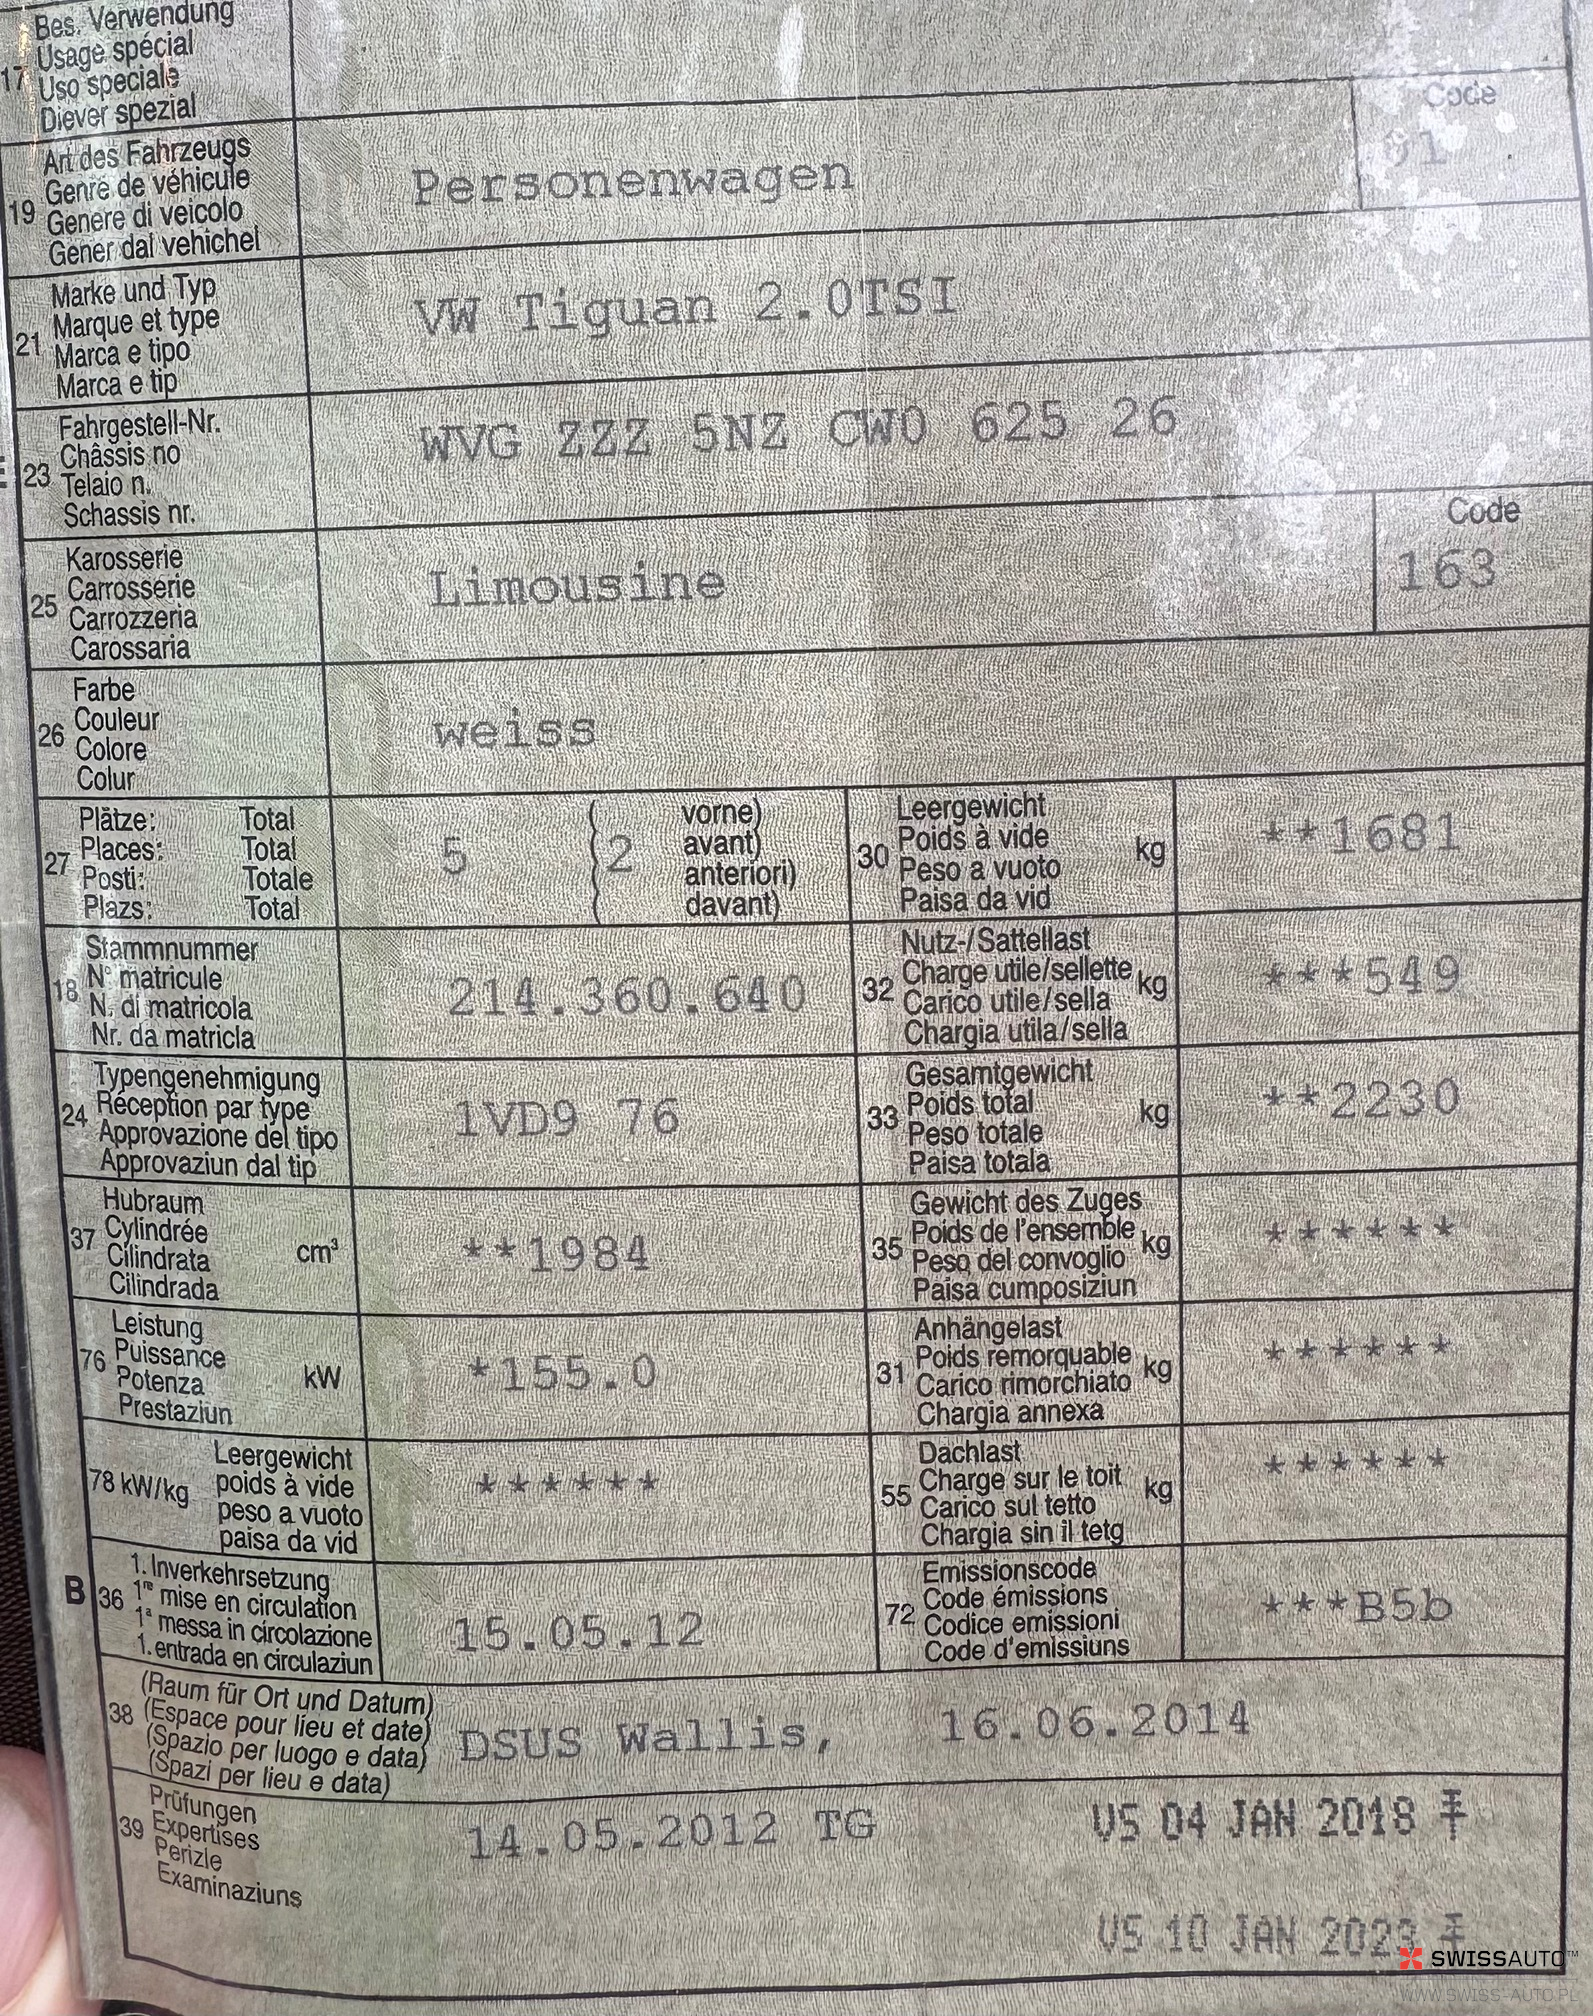 Bes. Verwendung
17 Usage spécial
Uso speciale
Diever spezial
Art des Fahrzeugs
19 Genre de véhicule
Genere di veicolo
Gener dal vehichel
Personenwagen
Code
01
Marke und Typ
21 Marque et type
Marca e tipo
Marca e tip
VW Tiguan 2.0TSI
Fahrgestell-Nr.
23 Châssis no
Telaio n.
Schassis nr.
WVG ZZZ 5NZ CW0 625 26
Karosserie
25 Carrosserie
Carrozzeria
Carossaria
Limousine
Code
163
Farbe
26 Couleur
Colore
Colur
weiss
Plätze: Total
27 Places: Total
Posti: Totale
Plazs: Total
5 (2 vorne)
avant)
anteriori)
davant)
Leergewicht
30 Poids à vide kg
Peso a vuoto
Paisa da vid
**1681
Stammnummer
18 N° matricule
N. di matricola
Nr. da matricla
214.360.640
Nutz-/Sattellast
32 Charge utile/sellette kg
Carico utile/sella
Chargia utila/sella
***549
Typengenehmigung
24 Réception par type
Approvazione del tipo
Approvaziun dal tip
1VD9 76
Gesamtgewicht
33 Poids total kg
Peso totale
Paisa totala
**2230
Hubraum
37 Cylindrée cm³
Cilindrata
Cilindrada
**1984
Gewicht des Zuges
35 Poids de l'ensemble kg
Peso del convoglio
Paisa cumposiziun
******
Leistung
76 Puissance kW
Potenza
Prestaziun
*155.0
Anhängelast
31 Poids remorquable kg
Carico rimorchiato
Chargia annexa
******
Leergewicht
78 kW/kg poids à vide
peso a vuoto
paisa da vid
******
Dachlast
55 Charge sur le toit kg
Carico sul tetto
Chargia sin il tetg
******
1. Inverkehrsetzung
B 36 1re mise en circulation
1a messa in circolazione
1. entrada en circulaziun
15.05.12
Emissionscode
72 Code émissions
Codice emissioni
Code d'emissiuns
***B5b
(Raum für Ort und Datum)
38 (Espace pour lieu et date)
(Spazio per luogo e data)
(Spazi per lieu e data)
DSUS Wallis, 16.06.2014
Prüfungen
39 Expertises
Perizie
Examinaziuns
14.05.2012 TG
VS 04 JAN 2018
VS 10 JAN 2023
SWISSAUTO™
WWW.SWISS-AUTO.PL